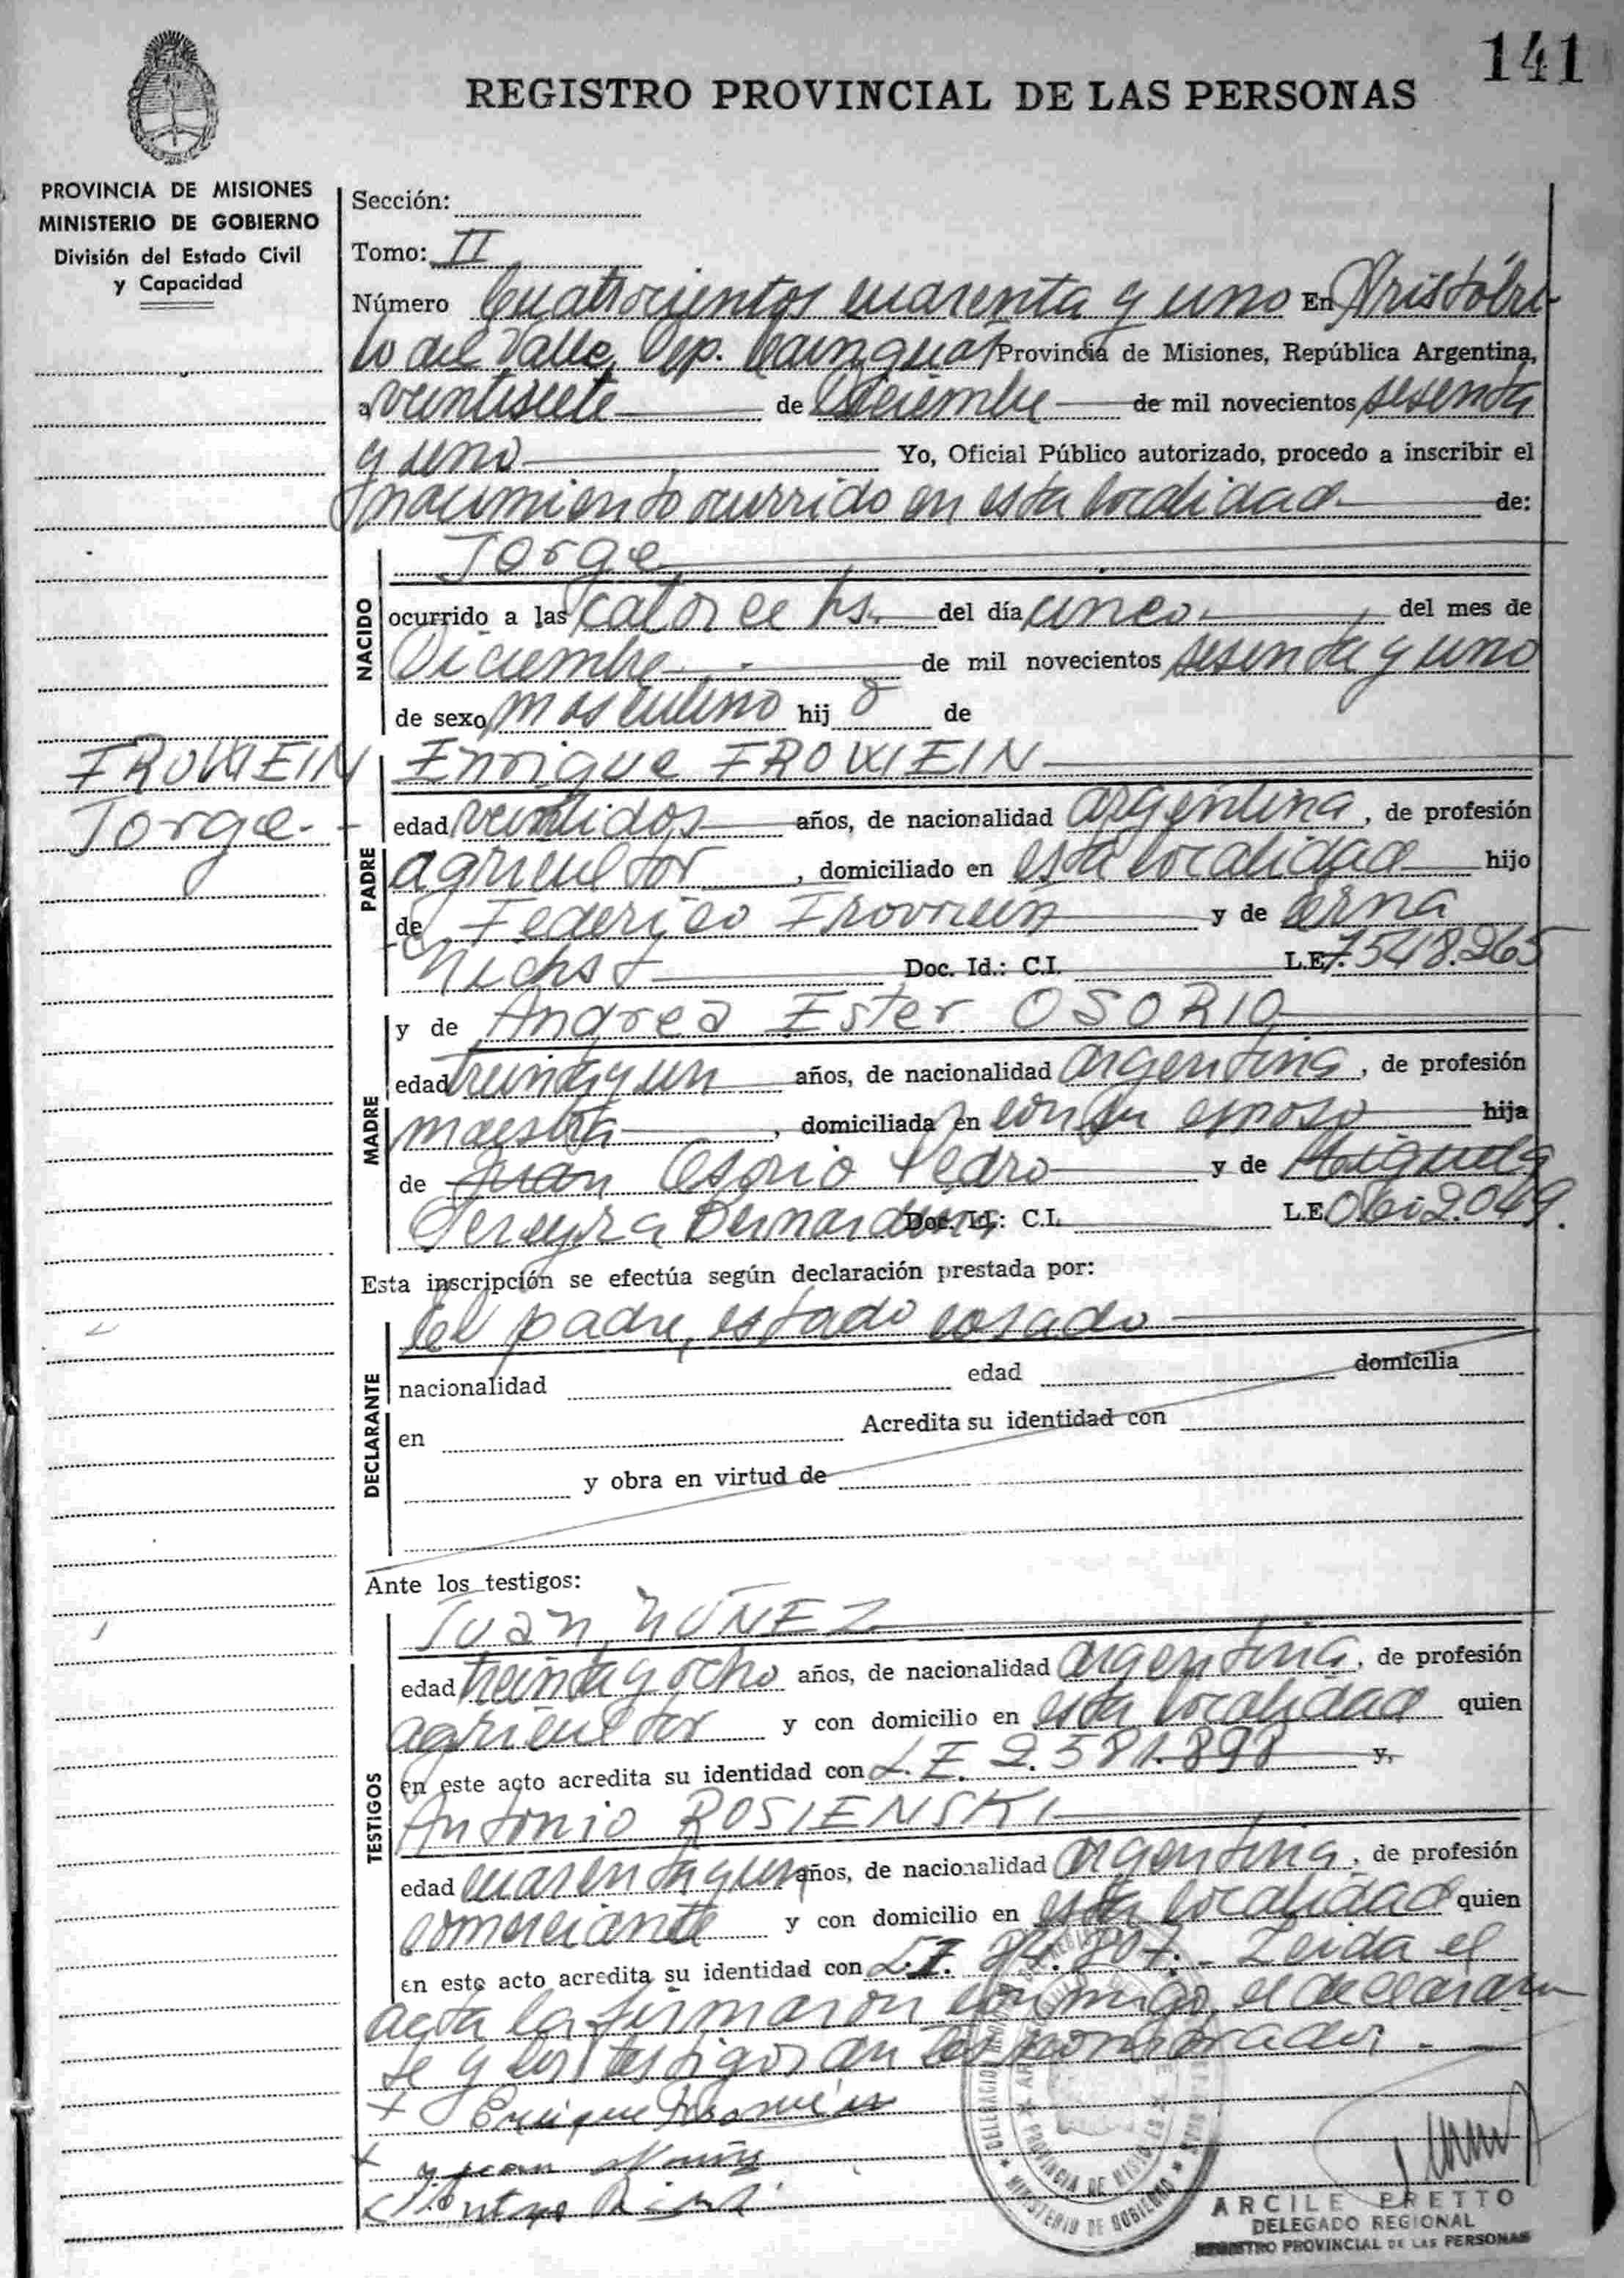 141
REGISTRO PROVINCIAL DE LAS PERSONAS
PROVINCIA DE MISIONES
MINISTERIO DE GOBIERNO
División del Estado Civil
y Capacidad
Sección:
Tomo: II
Número Cuatrocientos cuarenta y uno En Aristóbu-
lo del Valle, Dep. Cainguás Provincia de Misiones, República Argentina,
a veintisiete de Diciembre de mil novecientos sesenta
y uno Yo, Oficial Público autorizado, procedo a inscribir el
nacimiento ocurrido en esta localidad de:
NACIDO
Jorge
ocurrido a las catorce hs. del día cinco del mes de
Diciembre de mil novecientos sesenta y uno
de sexo masculino hijo de
FROWEIN
Jorge.-
PADRE
Enrique FROWEIN
edad veintidos años, de nacionalidad argentina, de profesión
agricultor, domiciliado en esta localidad hijo
de Federico Frowein y de Erna
Doc. Id.: C.I. L.E. 7.548.265
MADRE
y de Andrea Ester OSORIO
edad treinta y un años, de nacionalidad argentina, de profesión
maestra, domiciliada en con su esposo hija
de Juan Osorio Pedro y de Miguela
Pereyra Bernardina Doc. Id.: C.I. L.E.
Esta inscripción se efectúa según declaración prestada por:
DECLARANTE
El padre, estado casado
nacionalidad edad domicilia
en Acredita su identidad con
y obra en virtud de
Ante los testigos:
TESTIGOS
Juan NÚÑEZ
edad treinta y ocho años, de nacionalidad argentina, de profesión
agricultor y con domicilio en esta localidad quien
en este acto acredita su identidad con L.E. 2.581.898 y,
Antonio ROSIENSKI
edad cuarenta y un años, de nacionalidad argentina, de profesión
comerciante y con domicilio en esta localidad quien
en este acto acredita su identidad con L.E. Leida el
acta la firmaron conmigo, el declaran
te y los testigos
Enrique Frowein
Juan Núñez
PROVINCIA DE MISIONES
MINISTERIO DE GOBIERNO
ARCILE PRETTO
DELEGADO REGIONAL
REGISTRO PROVINCIAL DE LAS PERSONAS